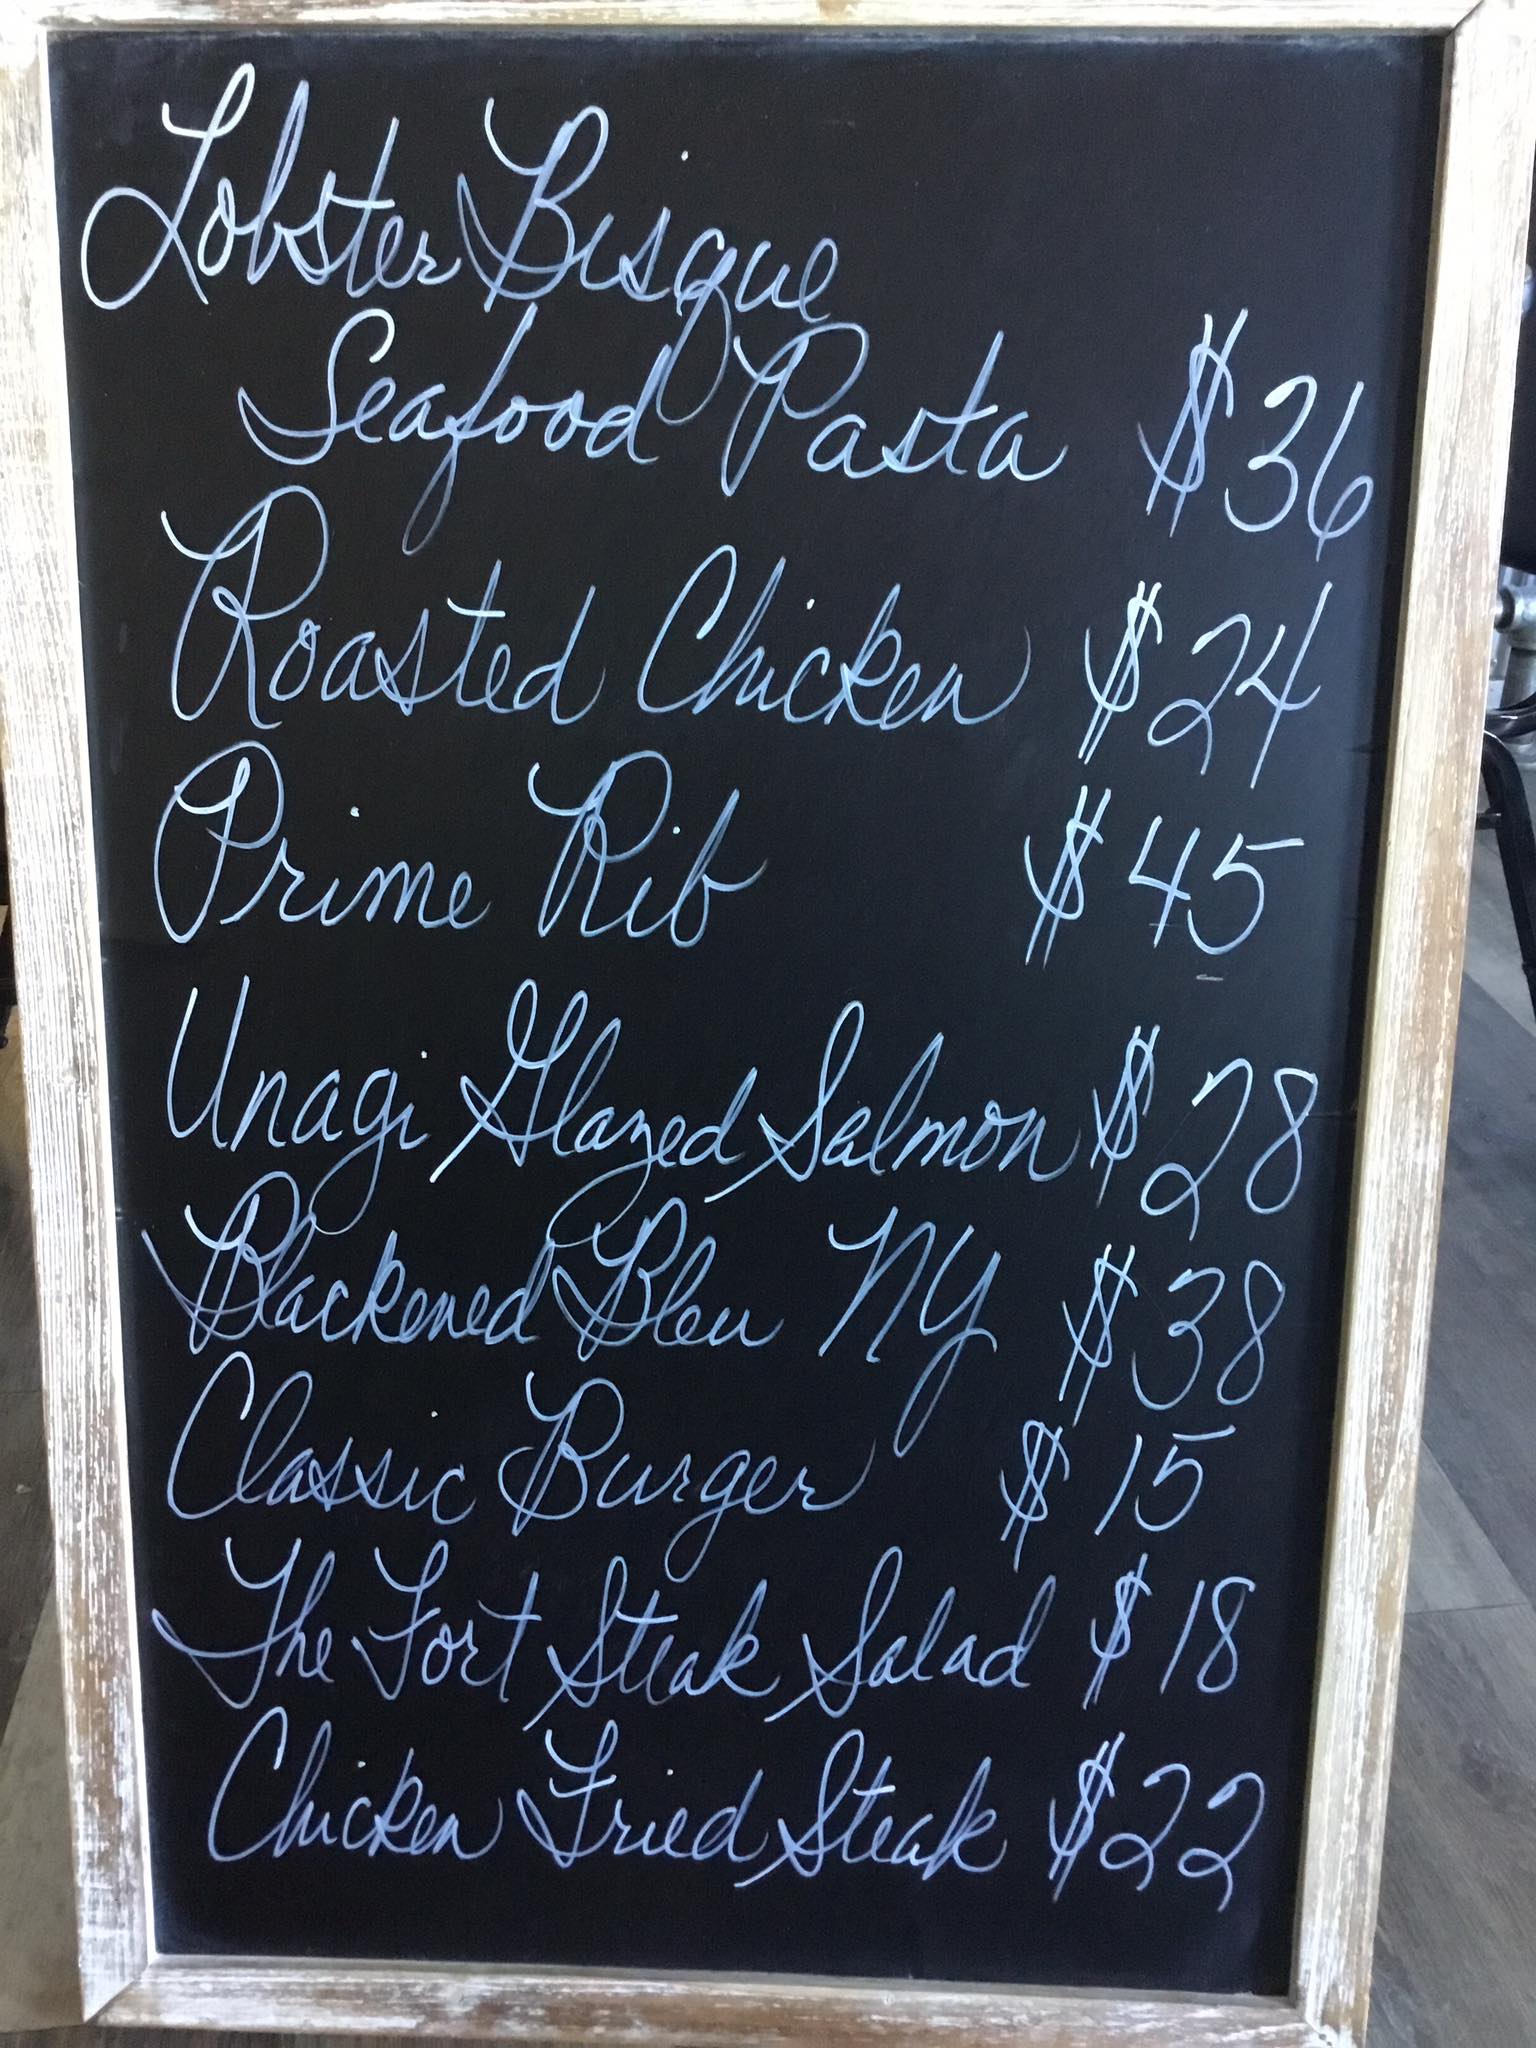 Lobster Bisque
Seafood Pasta $36
Roasted Chicken $24
Prime Rib $45
Unagi Glazed Salmon $28
Blackened Bleu NY $38
Classic Burger $15
The Fort Steak Salad $18
Chicken Fried Steak $22